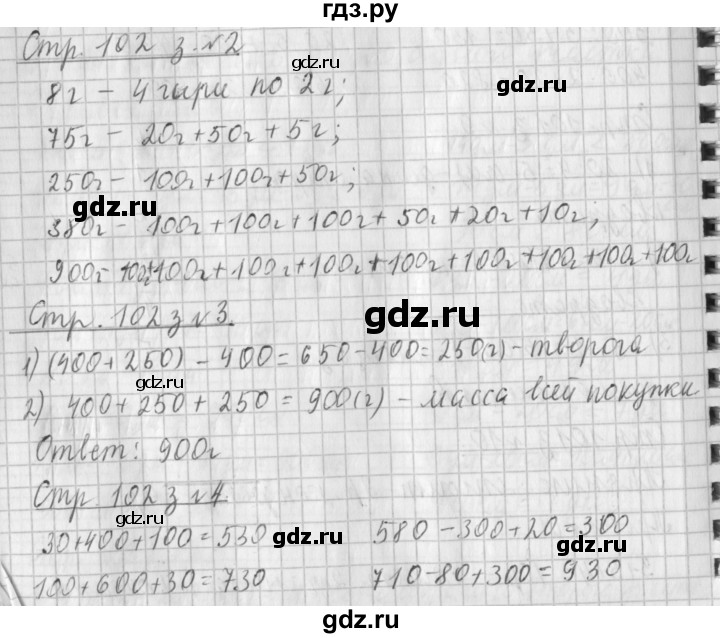 гдз.ру
Стр. 102 з. №2
gdz.ru
8г – 4 гири по 2г;
gdz.ru
75г – 20г+50г+5г;
gdz.ru
250г – 100г+100г+50г;
gdz.ru
380г – 100г+100г+100г+50г+20г+10г;
900г – 100г+100г+100г+100г+100г+100г+100г+100г+100г
Стр. 102 з №3.
gdz.ru
1) (400+250) – 400 = 650 – 400 = 250(г) – творога
gdz.ru
2) 400+250+250 = 900(г) – масса всей покупки.
Ответ: 900г
gdz.ru
Стр. 102 з №4.
gdz.ru
30+400+100=530 580–300+20=300
gdz.ru gdz.ru
100+600+30=730 710–80+300=930
gdz.ru